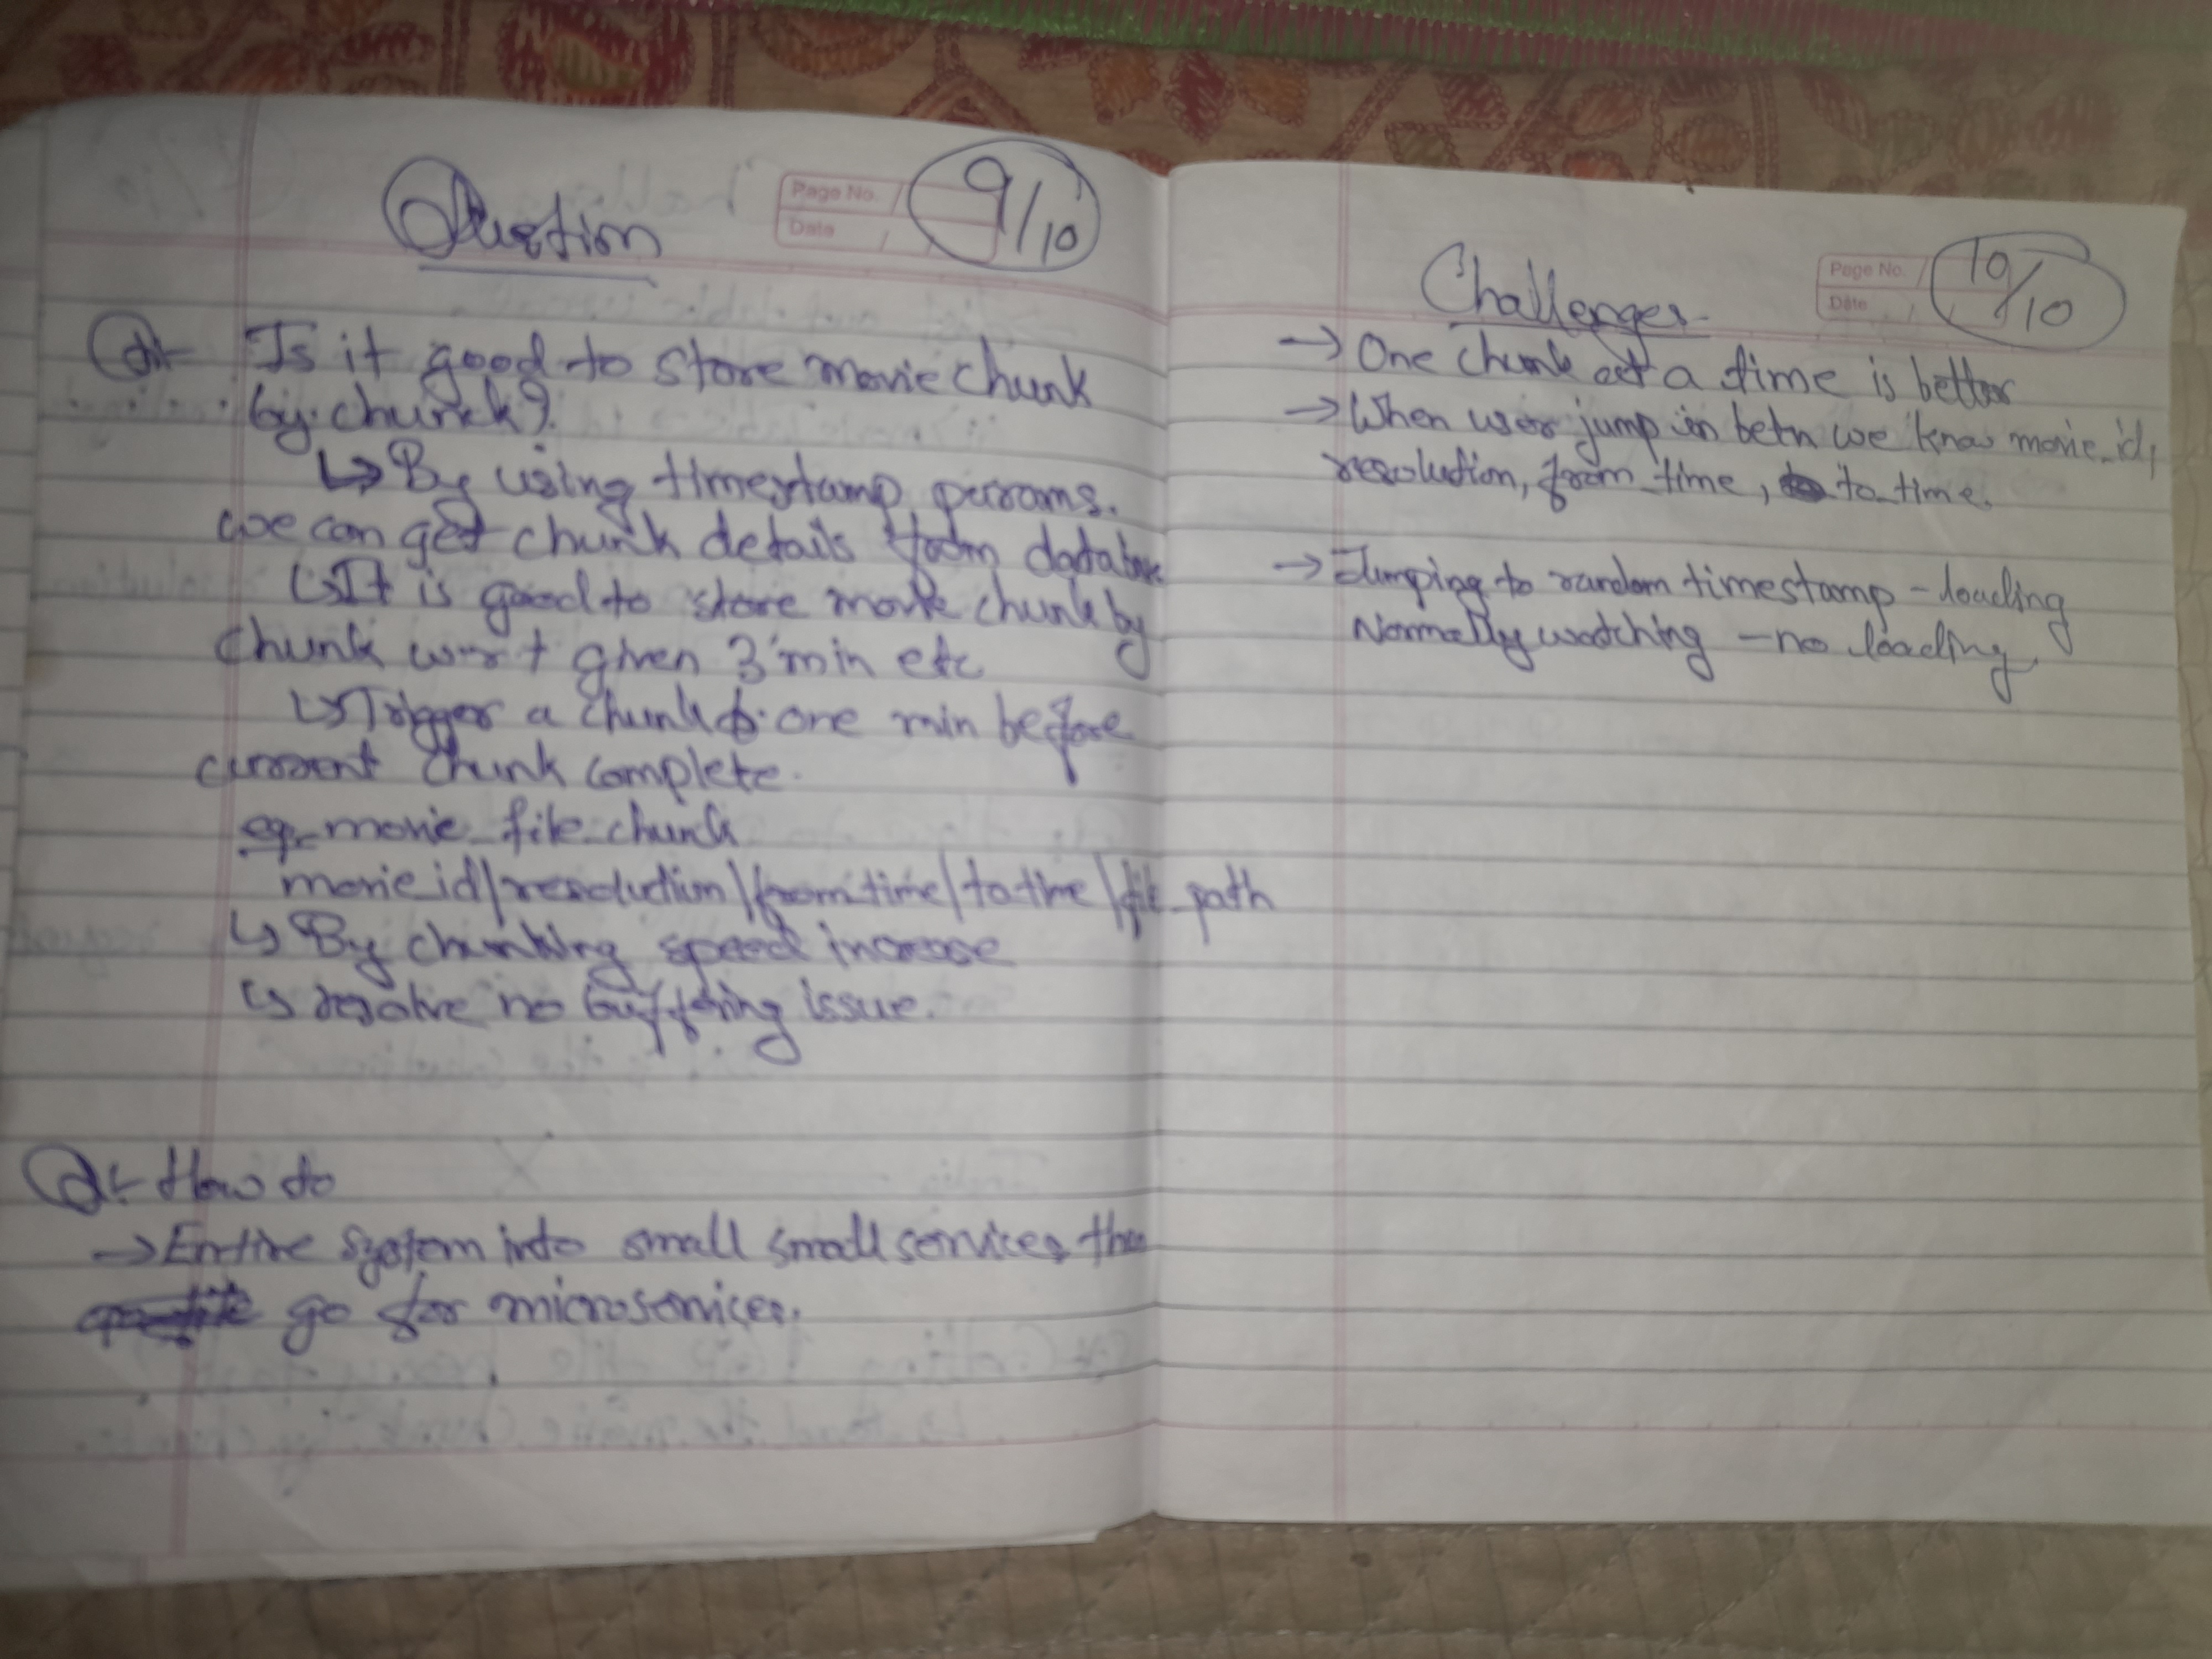 Page No.
Date
9/10
Question
Q1- Is it good to store movie chunk
by chunk?
↳ By using timestamp params.
we can get chunk details from database
↳ It is good to store movie chunk by
chunk w.r.t given 3 min etc
↳ Trigger a chunk one min before
current chunk complete.
eg- movie_file_chunk
movie_id/resoludion/from_time/to_time/file_path
↳ By chunking speed increase
↳ resolve no buffering issue.
Q1- How do
→ Entire system into small small services, the
go for microservices.
Page No.
Date
10/10
Challenges-
→ One chunk at a time is better
→ When user jump in betn we know movie_id,
resolution, from_time, to_time.
→ Jumping to random timestamp - loading
Normally watching - no loading